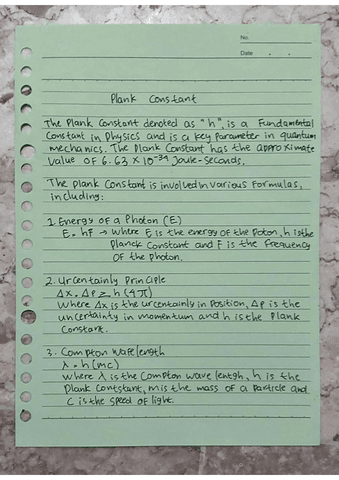 No.
Date . .
Plank Constant
The Plank Constant denoted as "h", is a Fundamental
Constant in Physics and is a key Parameter in quantum
mechanics. The Plank Constant has the approximate
value OF 6.63 X 10⁻³⁴ Joule-Seconds.
The Plank Constant is involved in various Formulas,
including:
1. Energy of a Photon (E)
E = hf → Where E is the energy of the Poton, h is the
Planck Constant and F is the frequency
OF the Photon.
2. Uncertainly Principle
Δx . Δp ≥ h (4π)
Where Δx is the uncertainly in Position, Δp is the
uncertainty in momentum and h is the Plank
Constant.
3. Compton Wavelength
λ = h (mc)
Where λ is the Compton wave lentgh, h is the
Plank Contstant, m is the mass of a Particle and
C is the speed OF light.